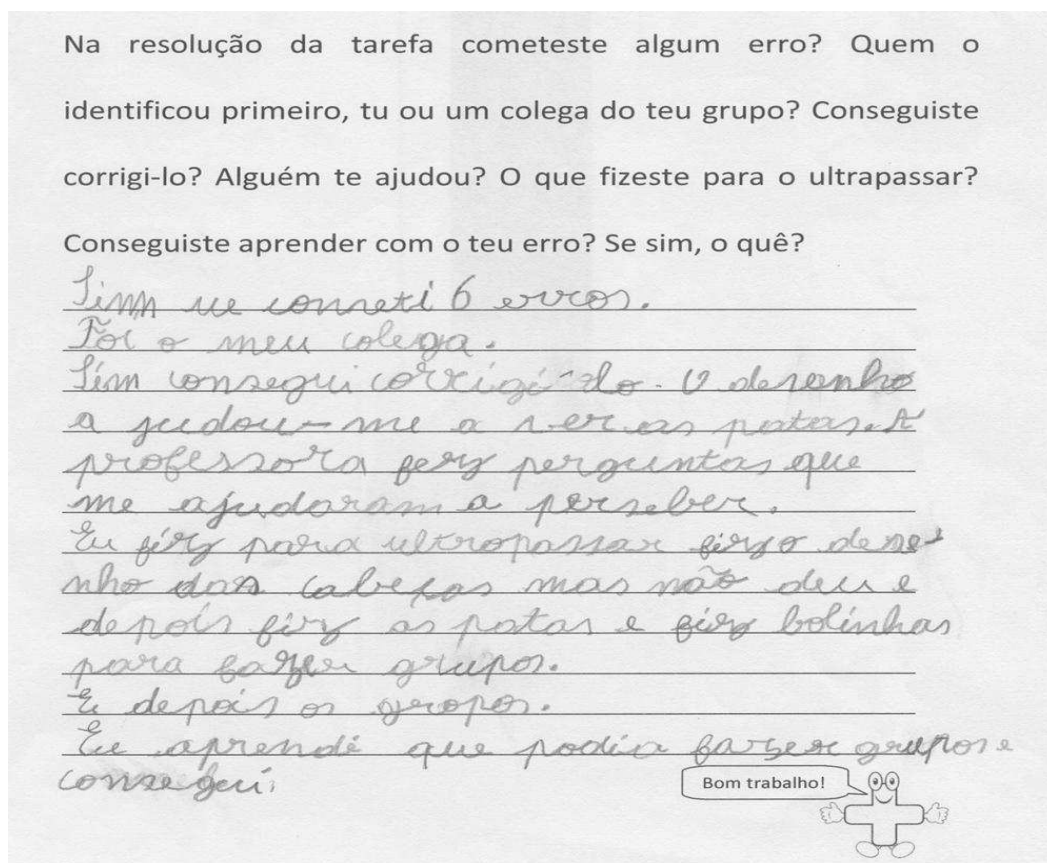 Na resolução da tarefa cometeste algum erro? Quem o
identificou primeiro, tu ou um colega do teu grupo? Conseguiste
corrigi-lo? Alguém te ajudou? O que fizeste para o ultrapassar?
Conseguiste aprender com o teu erro? Se sim, o quê?
Simm cometi 6 erros.
Foi o meu colega.
Sim consegui corrigi-lo. O desenho
a judou-me a ver as patas. A
professora fez perguntas que
me ajudaram a perseber.
Eu fiz para ultropassar fiz o dese
nho das cabeças mas não deu e
depois fiz as patas e fiz bolinhas
para fazer grupos.
E depois os gropos.
Eu aprendi que podia fazer grupos e
consegui.
Bom trabalho!